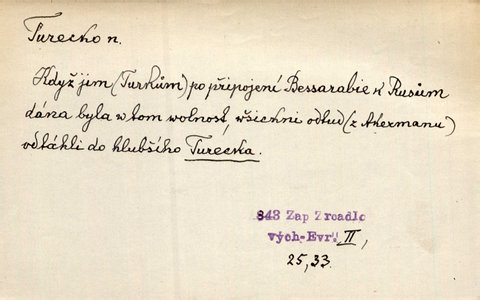 Turecko n.
Když jim (Turkům) po připojení Bessarabie k Rusům
dána byla w tom wolnost, wšickni odtud (z Akermanu)
odtáhli do hlubšího Turecka.
843 Zap Zrcadlo
vých-Evr. II,
25,33.